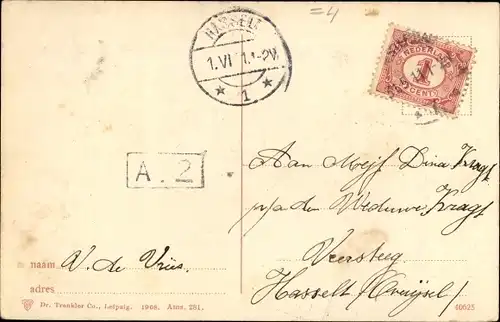 =4
HASSELT
1.VI 11.1-2V.
1
NEDERLAND
1
CENT
A.2
Aan Mejf Dina Kragt
p/a den Weduwe Kragt
Veersteeg
Hasselt (Overijsel)
naam V. de Vries.
adres
Dr. Trenkler Co., Leipzig. 1908. Ams. 281.
40625